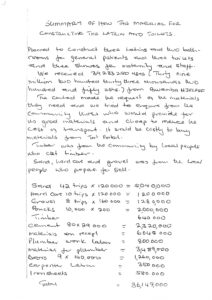 SUMMARY OF HOW THE MATERIAL FOR
CONSTRUCTING THE LATRIN AND TOILETS
Planned to construct three Latrins and two bath-
rooms for general patients and two toilets
and three showers for maternity and staff.
We received 39,833,250 UGX (Thirty nine
million Eight hundred thirty three thousands two
hundred and fifty only) from
The Council made the request of the materials
they need and we tried to enquire from the
Community those who would provide for
us good materials and cheap to reduce the
cost in transport. It would be costly to buy
materials from
Timber was from the Community by local people
who cut timber.
Sand, Hard core and gravel was from the local
people who prepare for sell.
Sand 42 trips x 120,000 = 5,040,000
Hard core 10 trips x 120,000 = 1,200,000
Gravel 8 trips x 160,000 = 1,280,000
Bricks 10,000 x 200 = 2,000,000
Timber = 640,000
Cement 90 x 29,000 =
Materials on receipt =
Plumber work labor = 800,000
Material for plumber =
Doors 9 x 140,000 = 1,260,000
Carpenter Labor = 350,000
Iron sheets = 580,000
Total = 36,149,000